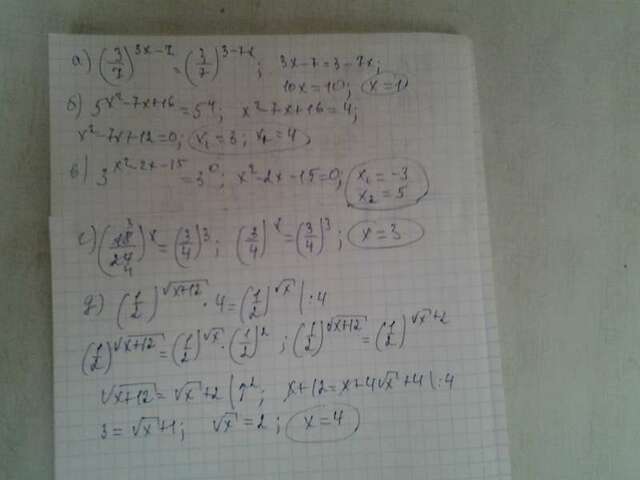 а) (3/7)^(3x-7) = (3/7)^(3-7x); 3x-7=3-7x;
10x=10; x=1
б) 5^(x²-7x+16) = 5⁴; x²-7x+16=4;
x²-7x+12=0; x₁=3; x₂=4,
в) 3^(x²-2x-15) = 3⁰; x²-2x-15=0; x₁=-3
x₂=5
с) (18/24)^x = (3/4)³; (3/4)^x = (3/4)³; x=3
д) (1/2)^√(x+12) · 4 = (1/2)^√x |:4
(1/2)^√(x+12) = (1/2)^√x · (1/2)²; (1/2)^√(x+12) = (1/2)^(√x+2)
√(x+12) = √x+2 |²; x+12=x+4√x+4 |:4
3=√x+1; √x=2; x=4